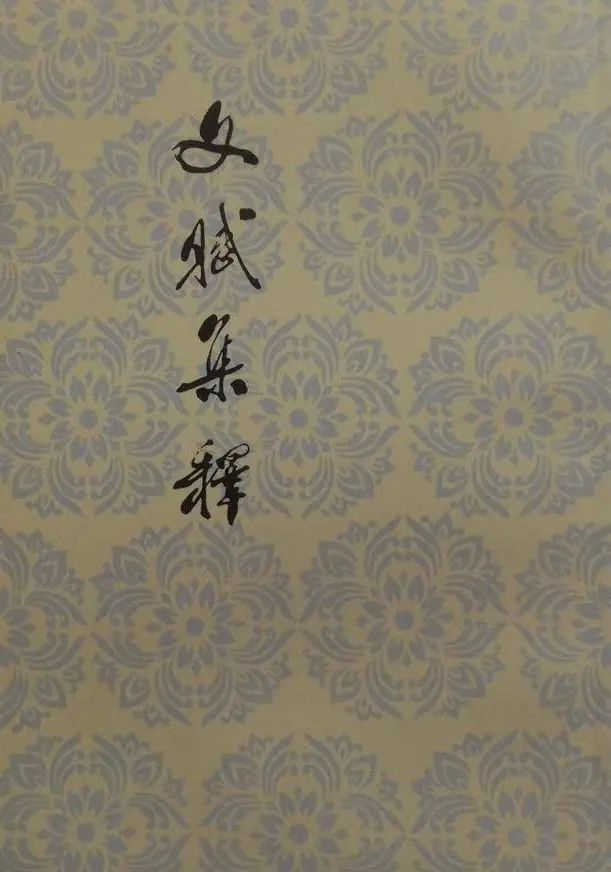 文賦集釋